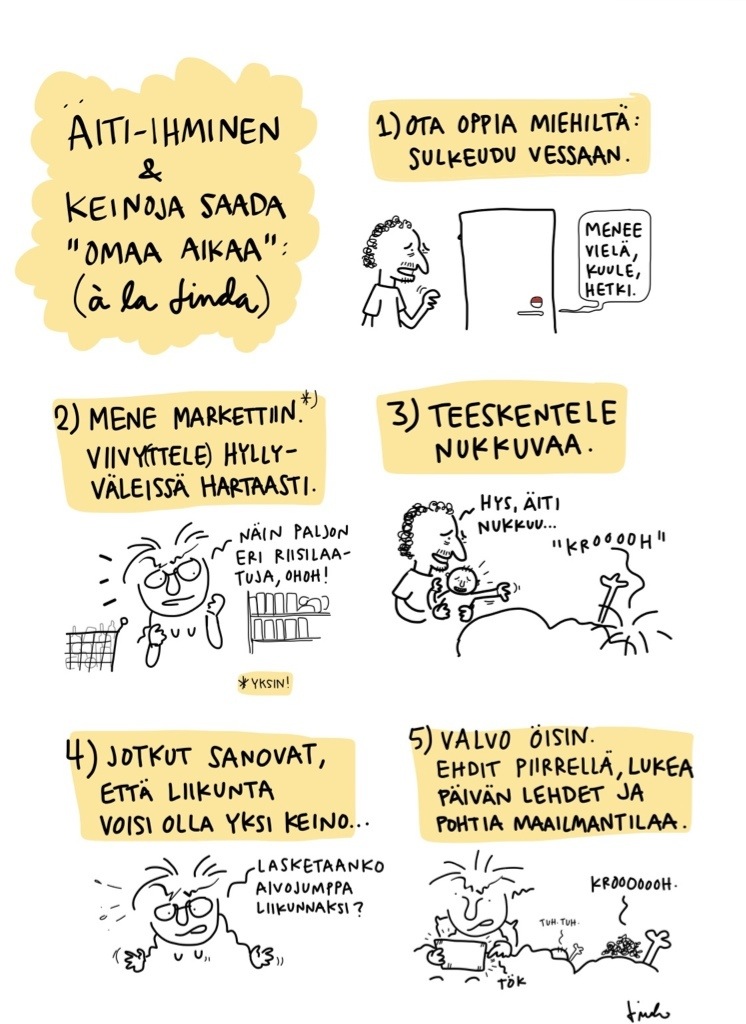 ÄITI-IHMINEN
&
KEINOJA SAADA
"OMAA AIKAA":
(à la Linda)
1) OTA OPPIA MIEHILTÄ:
SULKEUDU VESSAAN.
MENEE
VIELÄ,
KUULE,
HETKI.
2) MENE MARKETTIIN.*)
VIIVY(TTELE) HYLLY-
VÄLEISSÄ HARTAASTI.
NÄIN PALJON
ERI RIISILAA-
TUJA, OHOH!
*YKSIN!
3) TEESKENTELE
NUKKUVAA.
HYS, ÄITI
NUKKUU...
"KROOOOH"
4) JOTKUT SANOVAT,
ETTÄ LIIKUNTA
VOISI OLLA YKSI KEINO...
LASKETAANKO
AIVOJUMPPA
LIIKUNNAKSI?
5) VALVO ÖISIN.
EHDIT PIIRRELLÄ, LUKEA
PÄIVÄN LEHDET JA
POHTIA MAAILMANTILAA.
KROOOOOOH.
TUH. TUH.
TÖK